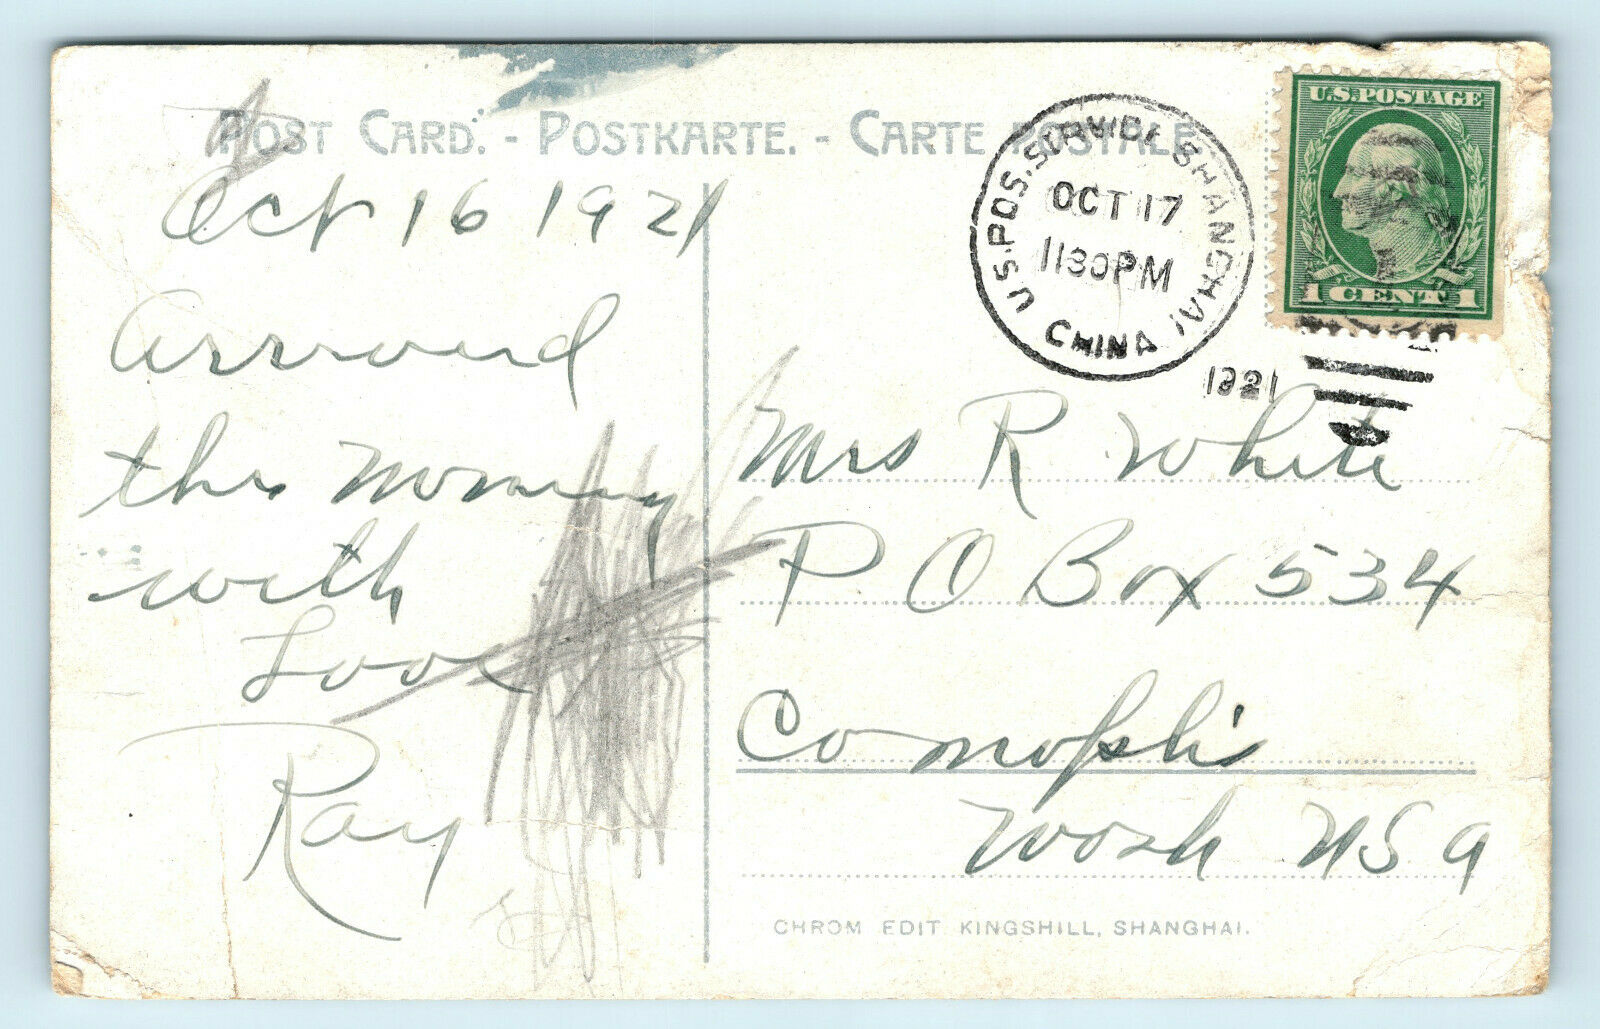 POST CARD. - POSTKARTE. - CARTE POSTALE.
Oct 16 1921
Arrived
this morning
with
Love
Ray
U.S. POS. SERVICE SHANGHAI
OCT 17
1130PM
CHINA
1921
U.S.POSTAGE
1 CENT 1
Mrs R White
P O Box 534
Comosplis
Wash USA
CHROM EDIT KINGSHILL, SHANGHAI.